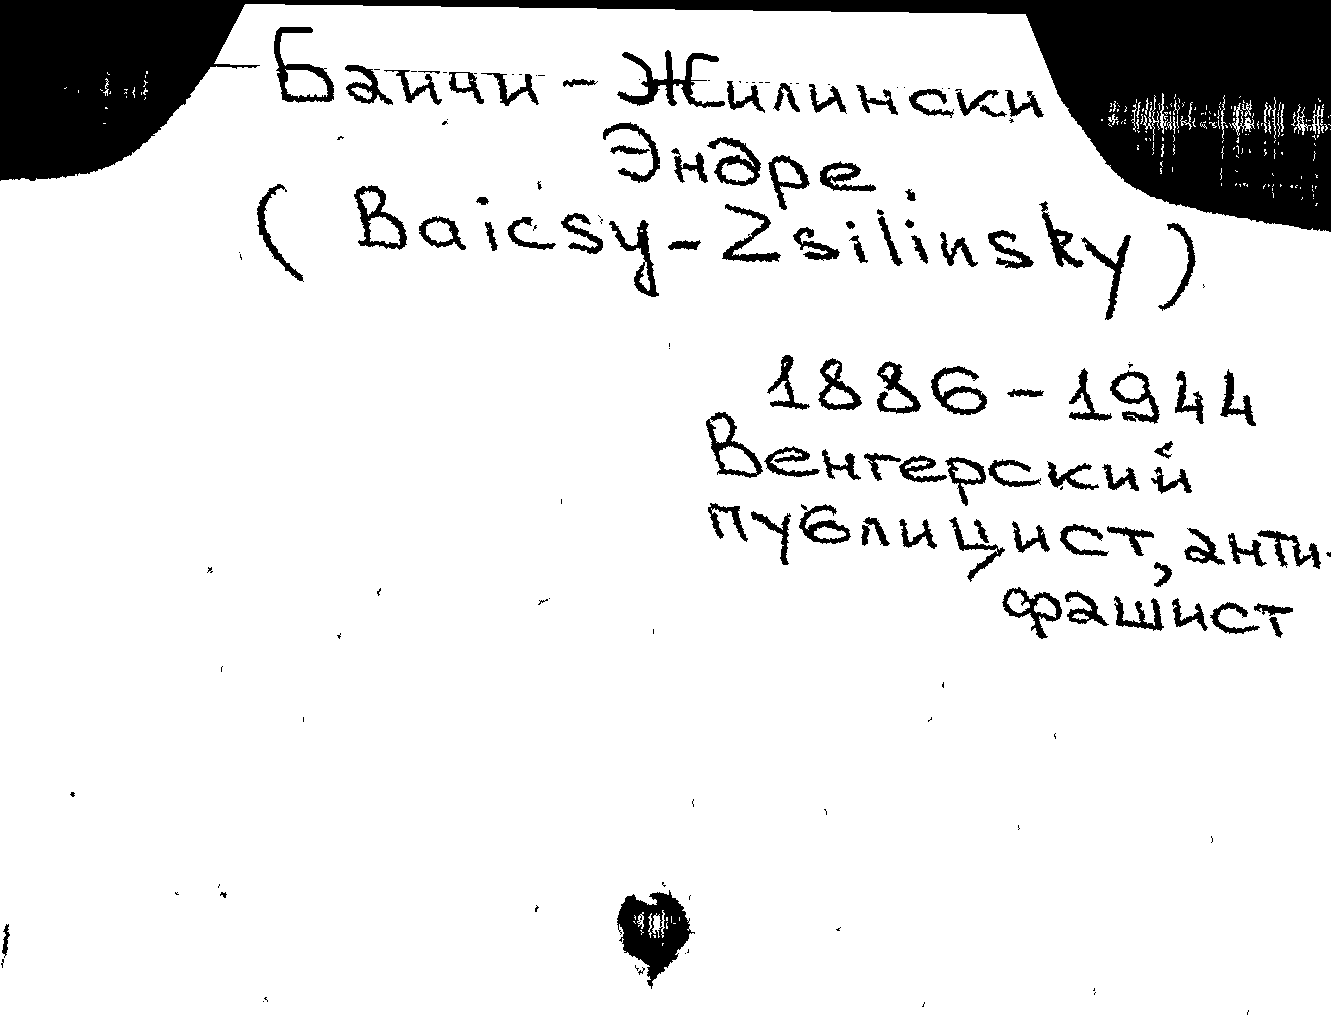 Баичи - Жилински
Эндре
( Baicsy - Zsilinsky )
1886 - 1944
Венгерский
публицист, анти-
фашист